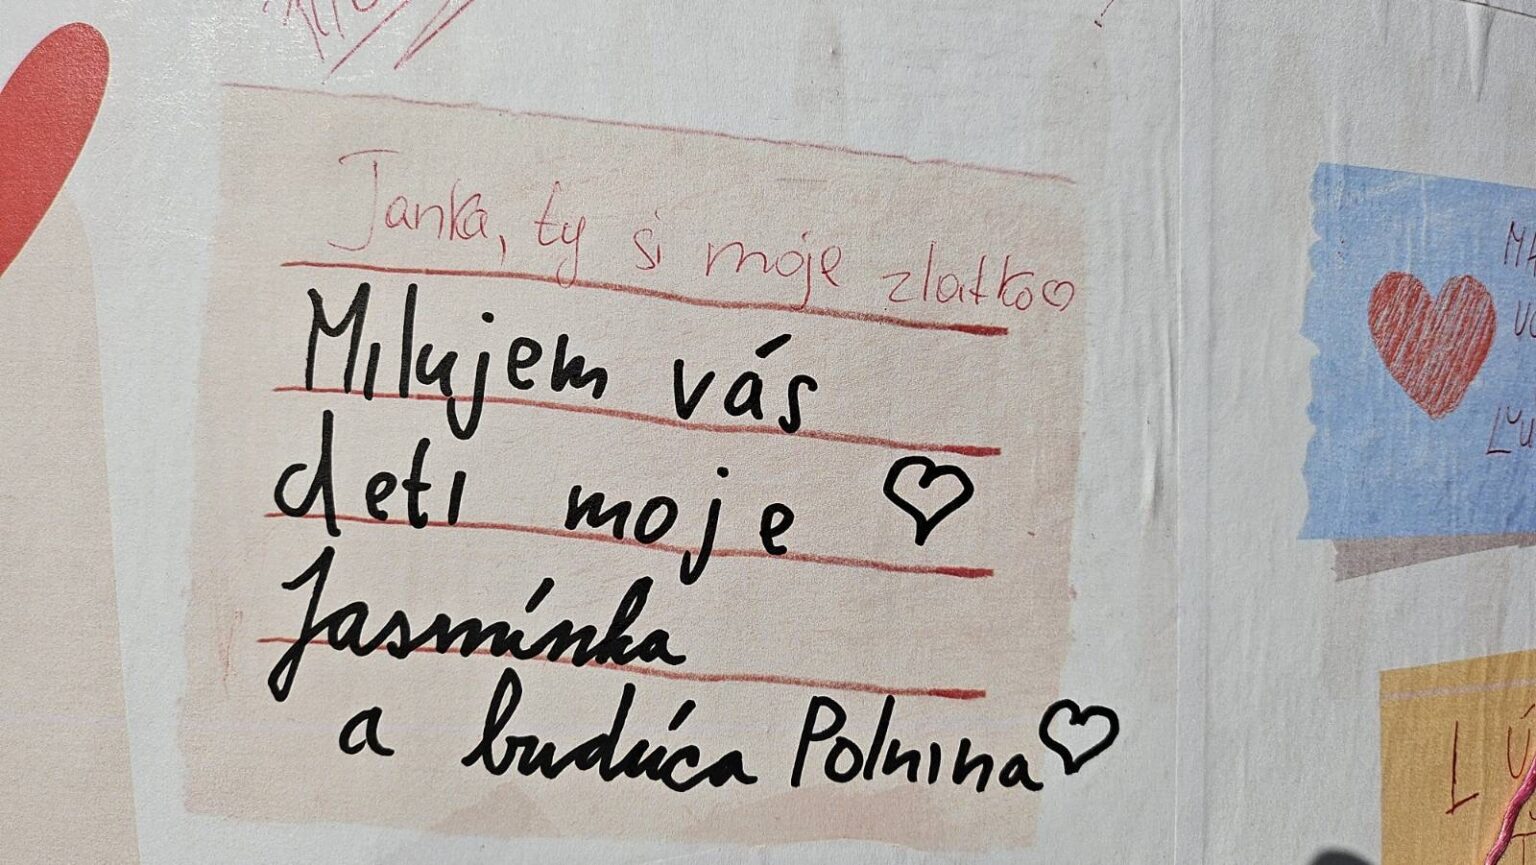 Janka, ty si moje zlatko♡
Milujem vás
deti moje ♡
Jasmínka
a budúca Polnina♡